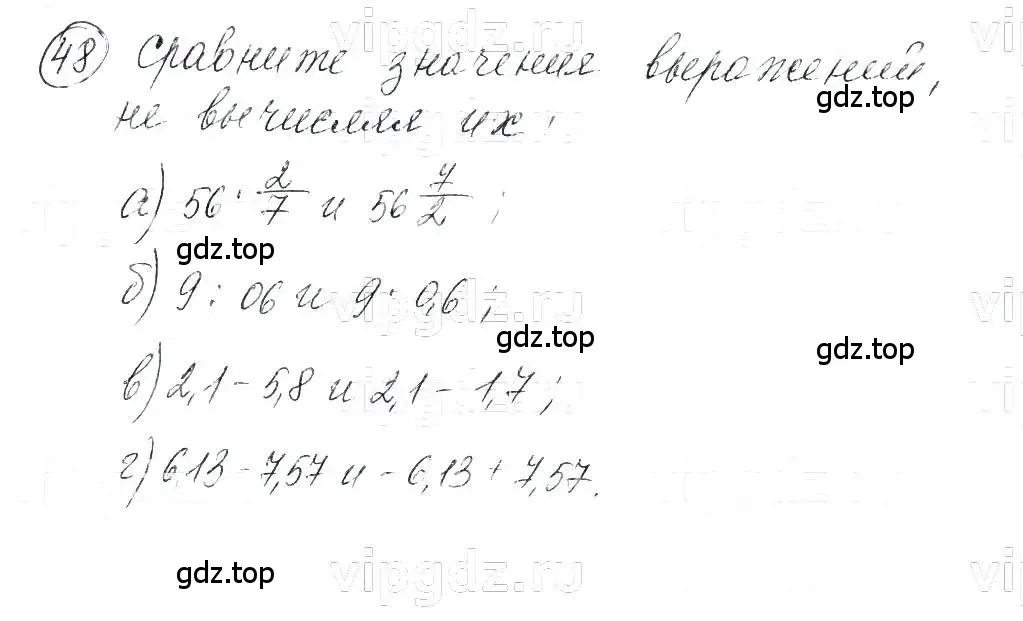 48 Сравните значения выражений,
не вычисляя их:
а) 56 · 2/7 и 56 7/2;
б) 9 : 06 и 9 · 0,6;
в) 2,1 - 5,8 и 2,1 - 1,7;
г) 6,13 - 7,57 и - 6,13 + 7,57.
gdz.top
gdz.top
gdz.top
gdz.top
gdz.top
vipgdz.ru
vipgdz.ru
vipgdz.ru
vipgdz.ru